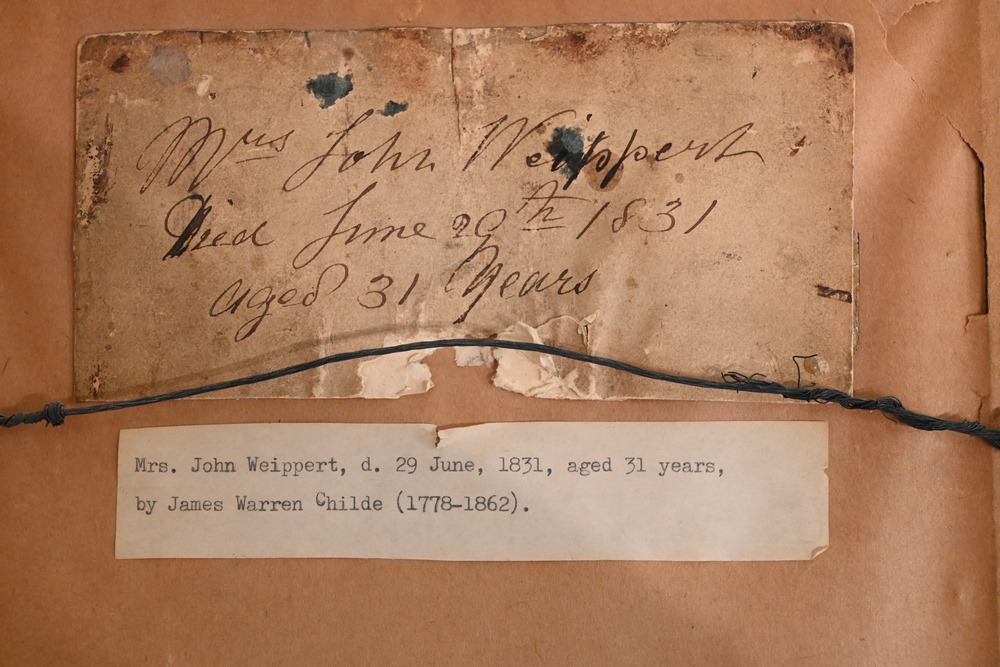 Mrs John Weippert
Died June 29th 1831
aged 31 Years
Mrs. John Weippert, d. 29 June, 1831, aged 31 years,
by James Warren Childe (1778-1862).